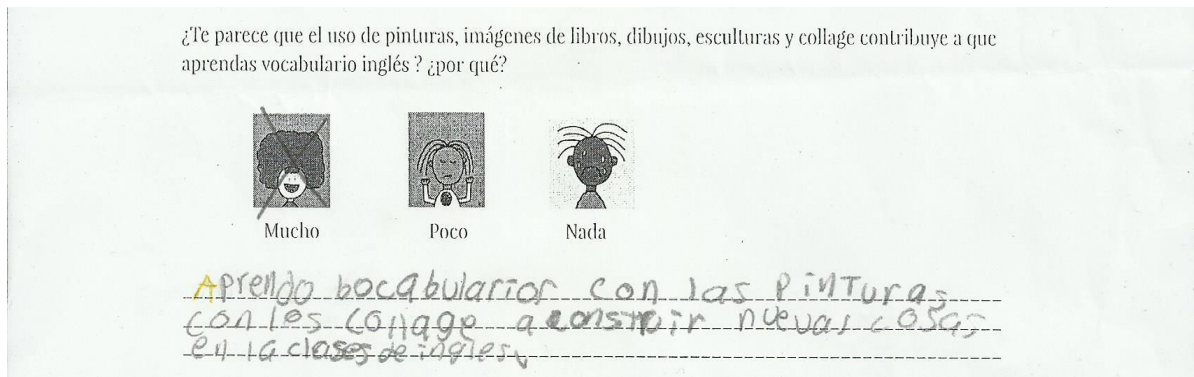 ¿Te parece que el uso de pinturas, imágenes de libros, dibujos, esculturas y collage contribuye a que
aprendas vocabulario inglés ? ¿por qué?
Mucho Poco Nada
Aprendo bocabularior con las pinturas
con los collage a construir nuevas cosas
en la clases de ingles.